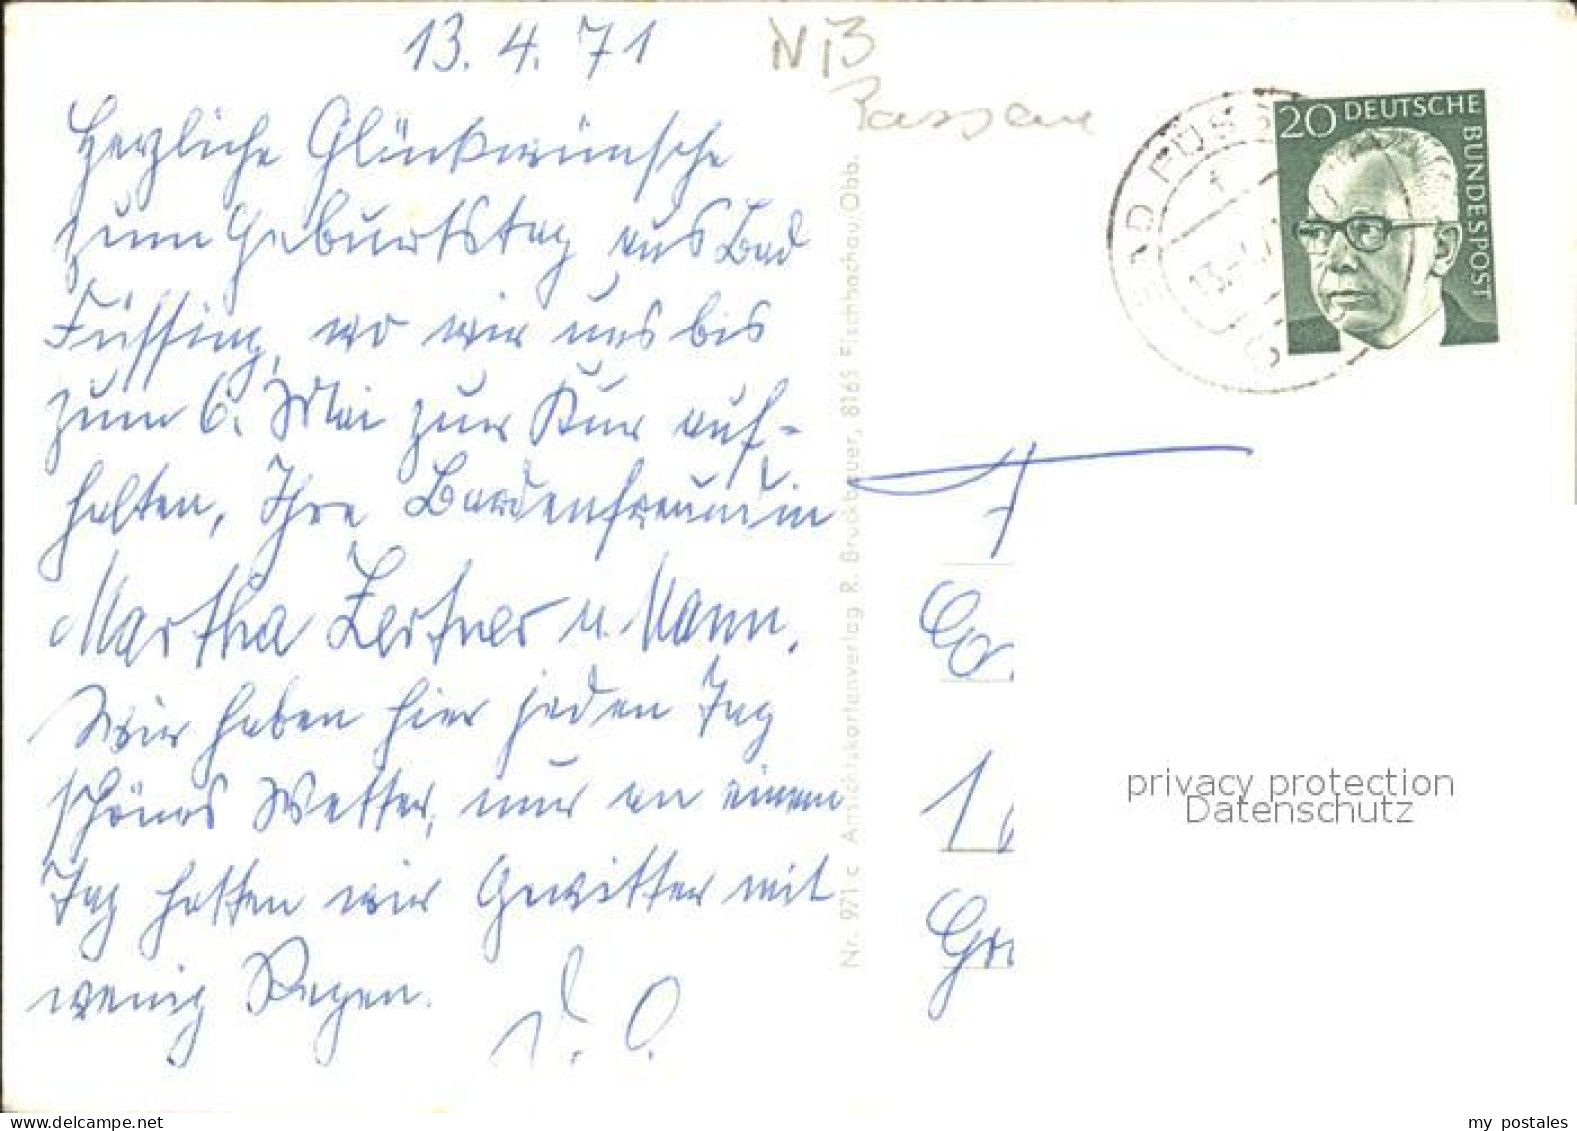 13. 4. 71
Herzliche Glückwünsche
zum Geburtstag aus Bad
Füssing, wo wir uns bis
zum 6. Mai zur Kur auf-
halten, Ihre
Martha u. Mann.
Wir haben hier jeden Tag
schönes Wetter, nur an einem
Tag hatten wir Gewitter mit
wenig Regen.
D. O.
NB
Passau
Nr. 971 c Ansichtskartenverlag R. Bruckbauer, 8165 Fischbachau/Obb.
20 DEUTSCHE
BUNDESPOST
BAD FÜSS
13.-4.
privacy protection
Datenschutz
my-postcard-shop
my postales